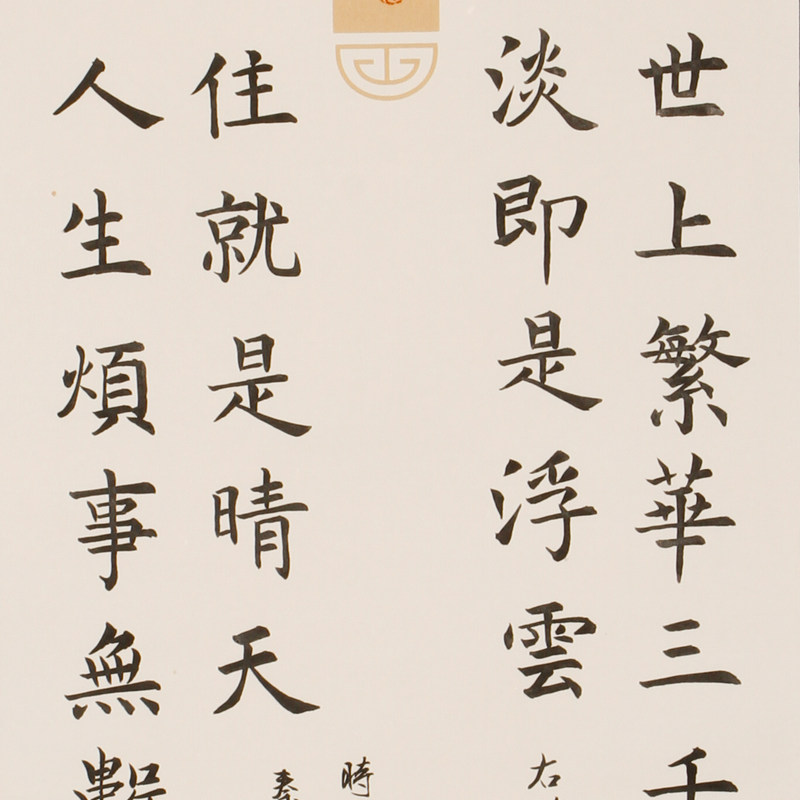 世上繁華三千
淡即是浮雲
右
時
秦
人生煩事無數
住就是晴天